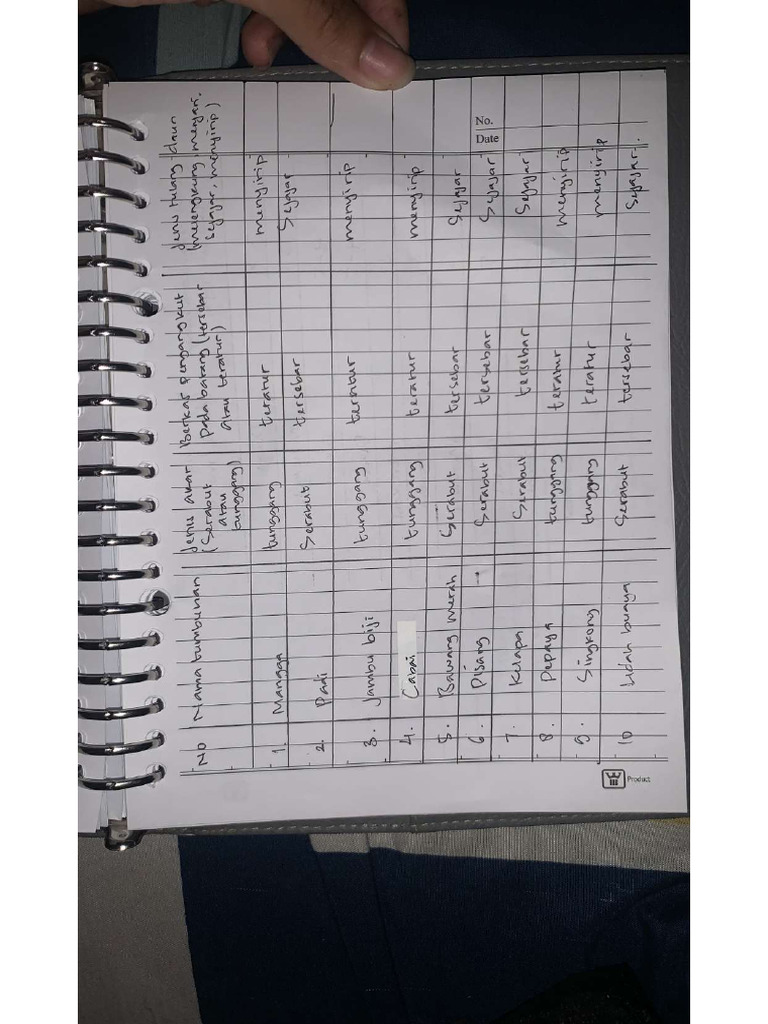 No.
Date
No
Nama tumbuhan
Jenis akar
(Serabut
atau
tunggang)
Berkas pengangkut
pada batang (tersebar
atau teratur)
Jenis tulang daun
(melengkung, menjari,
sejajar, menyirip)
1. Mangga tunggang teratur menyirip
2. Padi Serabut tersebar Sejajar
3. Jambu biji tunggang teratur menyirip
4. Cabai tunggang teratur menyirip
5. Bawang merah Serabut tersebar Sejajar
6. Pisang Serabut tersebar Sejajar
7. Kelapa Serabut tersebar Sejajar
8. Pepaya tunggang teratur menyirip
9. Singkong tunggang teratur menyirip
10 Lidah buaya Serabut tersebar Sejajar.
Product